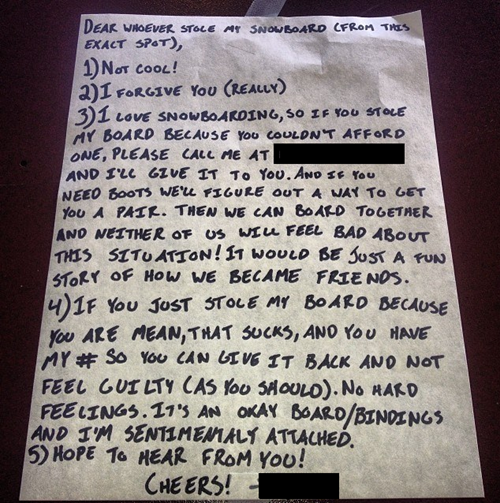 DEAR WHOEVER STOLE MY SNOWBOARD (FROM THIS
EXACT SPOT),
1) NOT COOL!
2) I FORGIVE YOU (REALLY)
3) I LOVE SNOWBOARDING, SO IF YOU STOLE
MY BOARD BECAUSE YOU COULDN'T AFFORD
ONE, PLEASE CALL ME AT
AND I'LL GIVE IT TO YOU. AND IF YOU
NEED BOOTS WE'LL FIGURE OUT A WAY TO GET
YOU A PAIR. THEN WE CAN BOARD TOGETHER
AND NEITHER OF US WILL FEEL BAD ABOUT
THIS SITUATION! IT WOULD BE JUST A FUN
STORY OF HOW WE BECAME FRIENDS.
4) IF YOU JUST STOLE MY BOARD BECAUSE
YOU ARE MEAN, THAT SUCKS, AND YOU HAVE
MY # SO YOU CAN GIVE IT BACK AND NOT
FEEL GUILTY (AS YOU SHOULD). NO HARD
FEELINGS. IT'S AN OKAY BOARD/BINDINGS
AND I'M SENTIMENTALY ATTACHED.
5) HOPE TO HEAR FROM YOU!
CHEERS! -